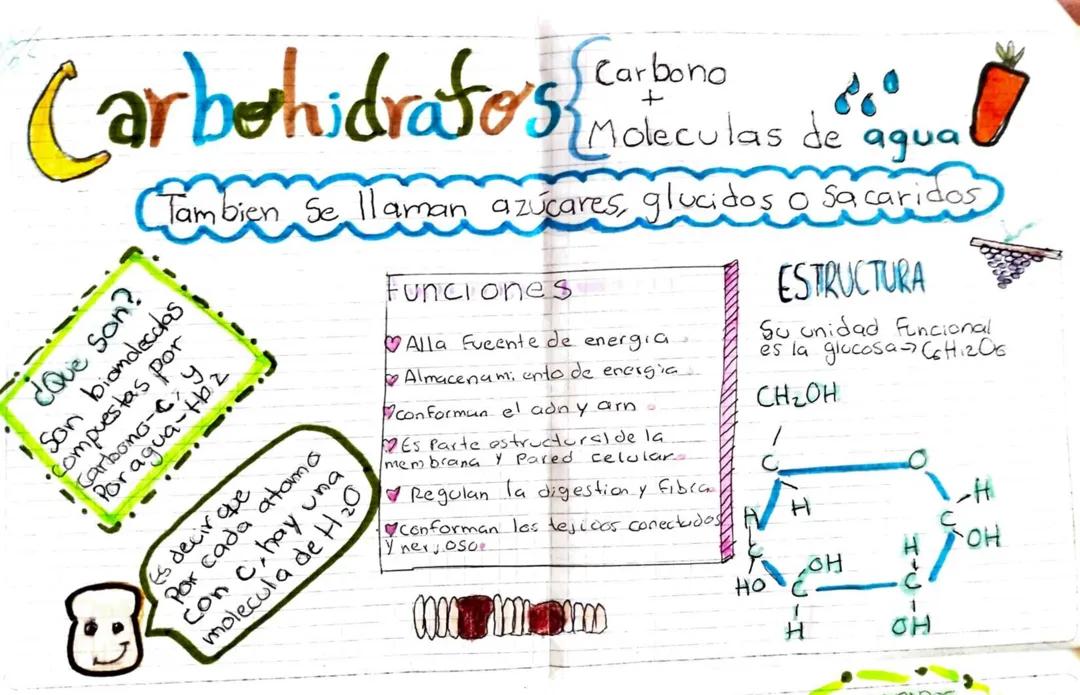 Carbohidratos
Carbono
+
Moleculas de agua
Tambien Se llaman azúcares, glucidos o Sacaridos
¿Que Son?
Son biomoleculas
compuestas por
carbono-C, y
Por agua-
Es decir que
Por cada atomo
con C, hay una
molecula de H2O
Funciones
Alta Fueente de energia
Almacenamiento de energia
conforman el adn y arn
Es Parte estructural de la
membrana y Pared celular
Regulan la digestion y Fibra
conforman los tejidos conectudos
y nervioso
ESTRUCTURA
Su unidad Funcional
es la glucosa→C6H12O6
CH2OH
C O
H H
H C
C OH
H
HO OH
C C
H OH